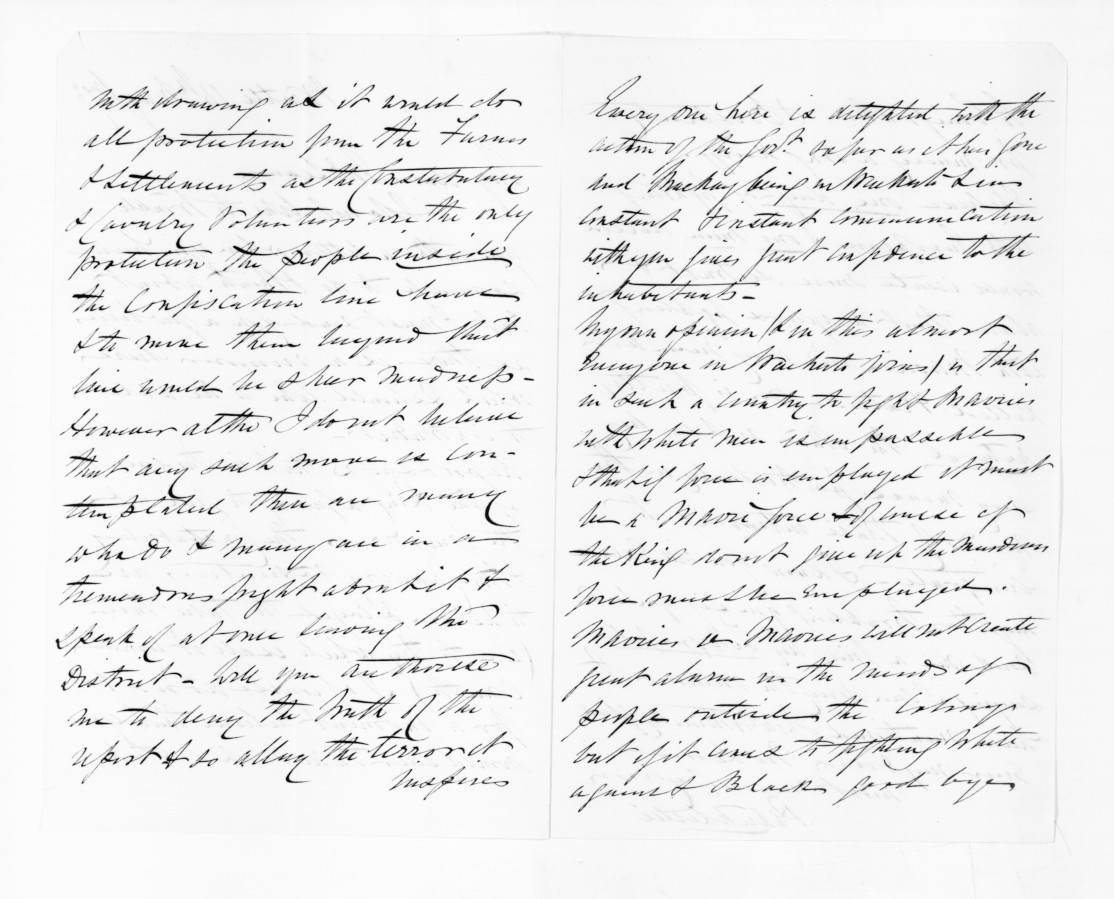 withdrawing as it would do
all protection from the Farms
& Settlements as the Constabulary
& Cavalry Volunteers are the only
protection the people inside
the Confiscation line have
& to move them beyond that
line would be sheer madness -
However altho I do not believe
that any such move is con-
templated there are many
who do & many are in a
tremendous fright about it &
speak of at once leaving the
District - Will you authorise
me to deny the truth of the
report & so allay the terror it
inspires
Every one here is delighted with the
action of the Govt. so far as it has gone
and Mackay being in Waikato & in
constant & instant communication
with you gives great confidence to the
inhabitants -
My own opinion (& in this almost
Everyone in Waikato joins) is that
in such a Country to fight Maories
with White Men is impossible
& that if force is employed it must
be a Maori force & of course if
the King do not give up the Murderers
force must be employed.
Maories v Maories will not create
great alarm in the minds of
people outside the Colony
but if it comes to fighting White
against Black good bye